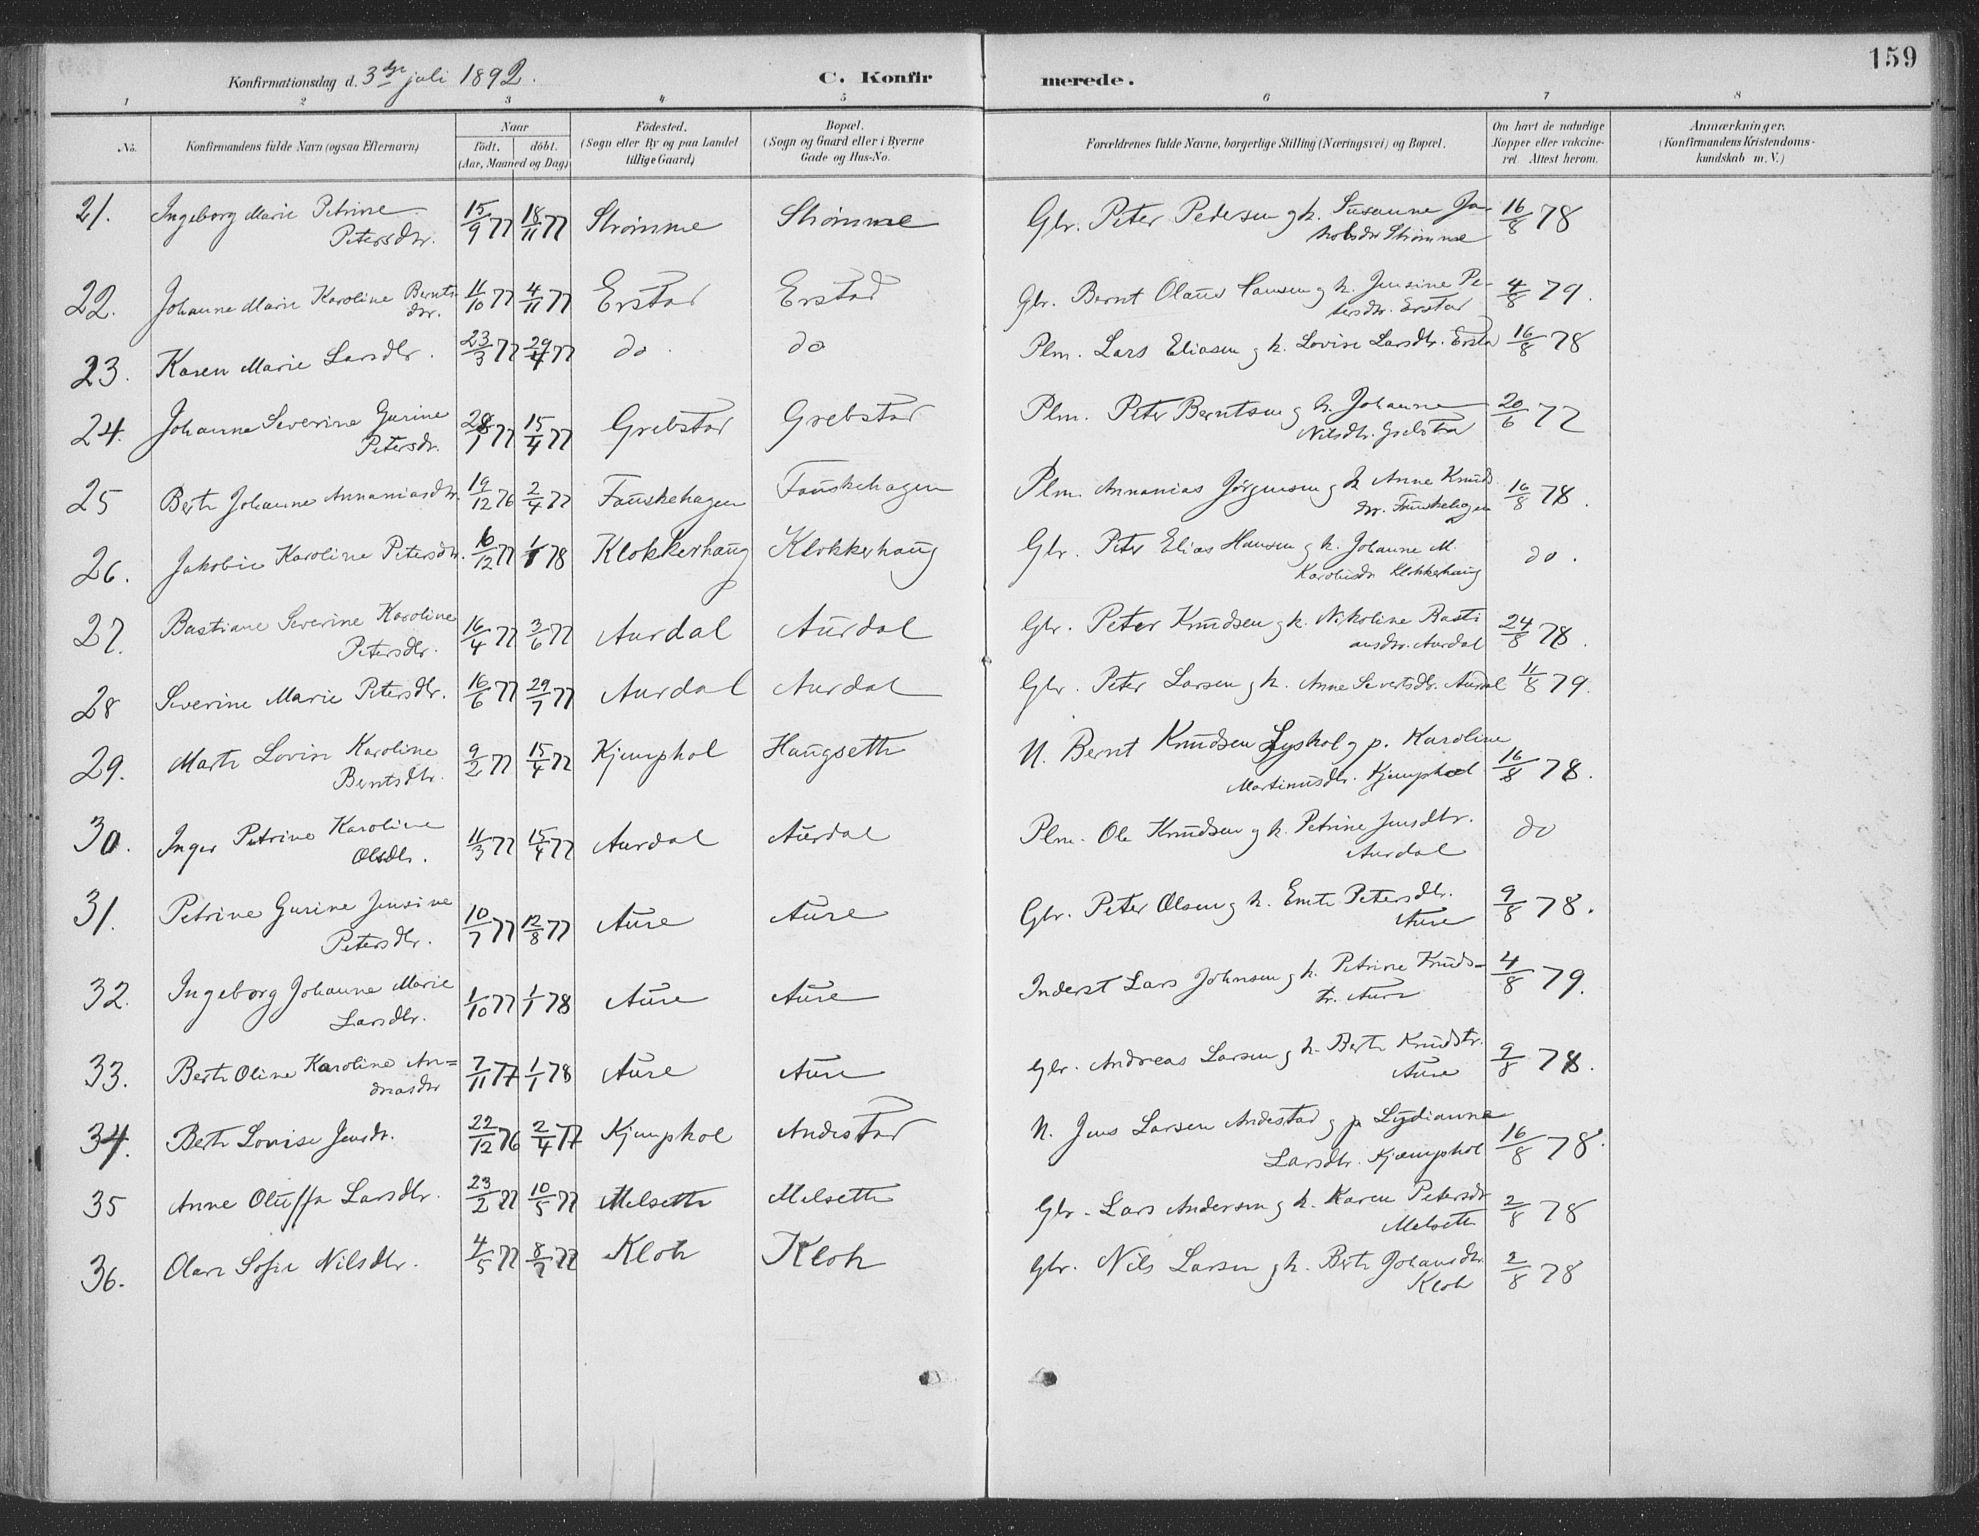 159
Konfirmationsdag d. 3die juli 1892.
C. Konfirmerede.
1 2 3 4 5 6 7 8
No.
Konfirmandens fulde Navn (ogsaa Efternavn)
Naar
födt. döbt.
(Aar, Maaned og Dag)
Födested.
(Sogn eller By og paa Landet
tillige Gaard)
Bopæl.
(Sogn og Gaard eller i Byerne
Gade og Hus-No.
Forældrenes fulde Navne, borgerlige Stilling (Næringsvei) og Bopæl.
Om havt de naturlige
Kopper eller vakcine-
ret. Attest herom.
Anmærkninger.
(Konfirmandens Kristendoms-
kundskab m. V.)
21. Ingeborg Marie Petrine 15/9 77 18/11 77 Strömme Strömme Gbr. Peter Pedersen g h. Susanne Ja- 16/8 78
Petersdtr. kobsdtr Strömme
22. Johanne Marie Karoline Bernts- 11/10 77 4/11 77 Erstad Erstad Gbr. Bernt Olaus Hansen g h. Jensine Pe- 4/8 79.
dtr. tersdtr. Erstad
23. Karen Marie Larsdtr. 23/3 77 29/4 77 do. do Plm. Lars Eliasen g h. Lovise Larsdtr. Ersta 16/8 78
24. Johanne Severine Gurine 28/1 77 15/4 77 Grebstad Grebstad Plm. Peter Berntsen g h. Johanne 20/6 77
Petersdr. Nilsdtr. Grebstad
25 Berth Johanne Annaniasdtr. 19/12 76 2/4 77 Fauskehagen Fauskehagen Plm. Annanias Jörgensen g h Anne Knuds- 16/8 78.
dtr. Fauskehagen
26. Jakobie Karoline Petersdtr. 16/12 77 1/1 78 Klokkerhaug Klokkerhaug Gbr. Peter Elias Hansen g h. Johanne M. do.
Karolusdr Klokkerhaug
27. Bastiane Severine Karoline 16/4 77 3/6 77 Aurdal Aurdal Gbr. Peter Knudsen g h. Nikoline Basti 24/8 78.
Petersdtr. ansdtr. Aurdal
28 Severine Marie Petersdtr. 16/6 77 29/7 77 Aurdal Aurdal Gbr. Peter Larsen g h. Anne Severtsdtr. Aurdal 11/8 79.
29. Marte Lovise Karoline 9/2 77 15/4 77 Kjemphol Haugseth N. Bernt Knudsen Lyshol g p. Karoline
Berntsdtr. Martinusdtr. Kjemphol 16/8 78.
30. Inger Petrine Karoline 11/3 77 15/4 77 Aurdal Aurdal Plm. Ole Knudsen g h. Petrine Jensdtr. do
Olsdtr. Aurdal
31. Petrine Gurine Jensine 10/7 77 12/8 77 Aure Aure Gbr. Peter Olsen g h. Emte Petersdtr. 9/8 78.
Petersdtr. Aure
32. Ingeborg Johanne Marie 1/10 77 1/1 78 Aure Aure Inderst Lars Johnsen g h. Petrine Knuds- 4/8 79.
Larsdtr. tr. Aure
33. Berth Oline Karoline An= 7/11 77 1/1 78 Aure Aure Gbr. Andreas Larsen g h. Berte Knudstr. 9/8 78.
dreasdtr Aure
34. Berte Lovise Jensdtr. 22/12 76 2/4 77 Kjemphol Andestad N. Jens Larsen Andestad g p Lydianne
Larsdtr. Kjæmphol 16/8 78.
35 Anne Oluffa Larsdtr. 23/2 77 10/5 77 Melseth Melseth Gbr. Lars Andersen g h. Karen Petersdtr 2/8 78
Melseth
36. Olave Sofie Nilsdtr. 4/5 77 8/7 77 Kloh Kloh Gbr. Nils Larsen g h. Berte Johansdtr. 2/8 78
Kloh